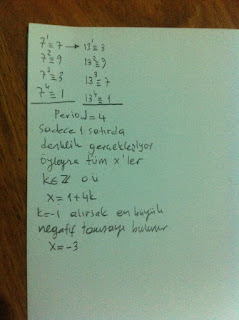 7¹≡7 → 13¹≡3
7²≡9 13²≡9
7³≡3 13³≡7
7⁴≡1 13⁴≡1
Period=4
Sadece 1 satırda
denklik gerçekleşiyor
öyleyse tüm x'ler
k∈Z o.ü
x=1+4k
k=-1 alırsak en büyük
negatif tamsayı bulunur
x=-3